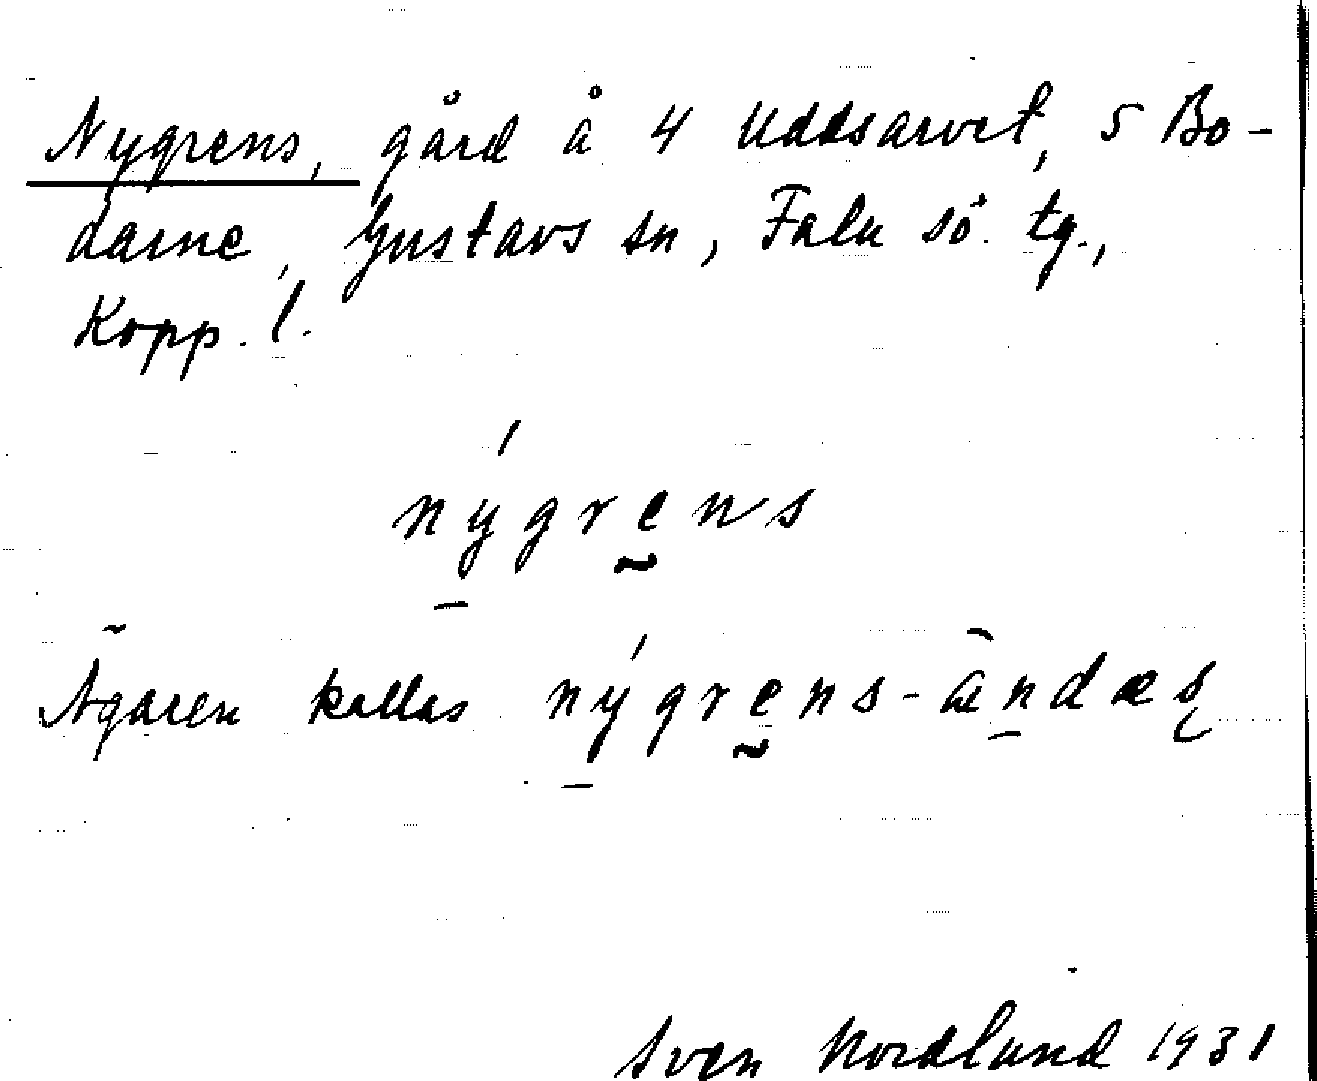 Nygrens, gård å 4 Uddsarvet, 5 Bo-
darne, Gustavs sn, Falu sö. tg.,
Kopp. l.
nýgrens
Ägaren kallas nýgrens-ändæs
Sven Nordlund 1931